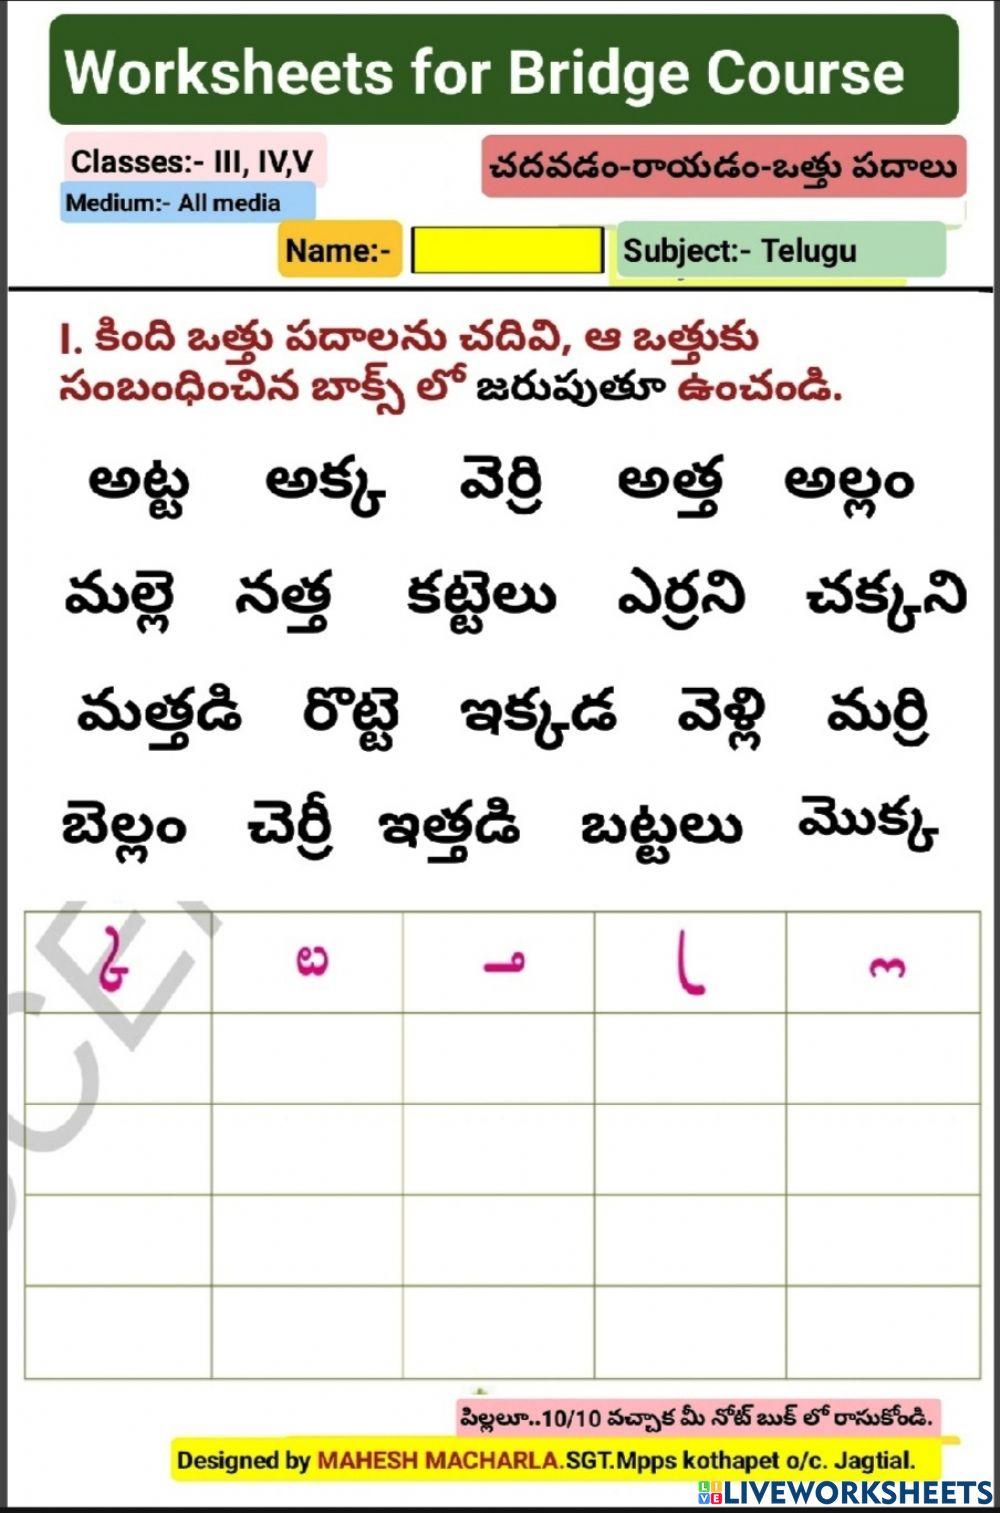 Worksheets for Bridge Course
Classes:- III, IV,V
చదవడం-రాయడం-ఒత్తు పదాలు
Medium:- All media
Name:-
Subject:- Telugu
I. కింది ఒత్తు పదాలను చదివి, ఆ ఒత్తుకు
సంబంధించిన బాక్స్ లో జరుపుతూ ఉంచండి.
అట్ట అక్క వెర్రి అత్త అల్లం
మల్లె నత్త కట్టెలు ఎర్రని చక్కని
మత్తడి రొట్టె ఇక్కడ వెళ్లి మర్రి
బెల్లం చెర్రీ ఇత్తడి బట్టలు మొక్క
్క ్ట ్త ్ర ్ల
పిల్లలూ..10/10 వచ్చాక మీ నోట్ బుక్ లో రాసుకోండి.
Designed by MAHESH MACHARLA.SGT.Mpps kothapet o/c. Jagtial.
LIVEWORKSHEETS